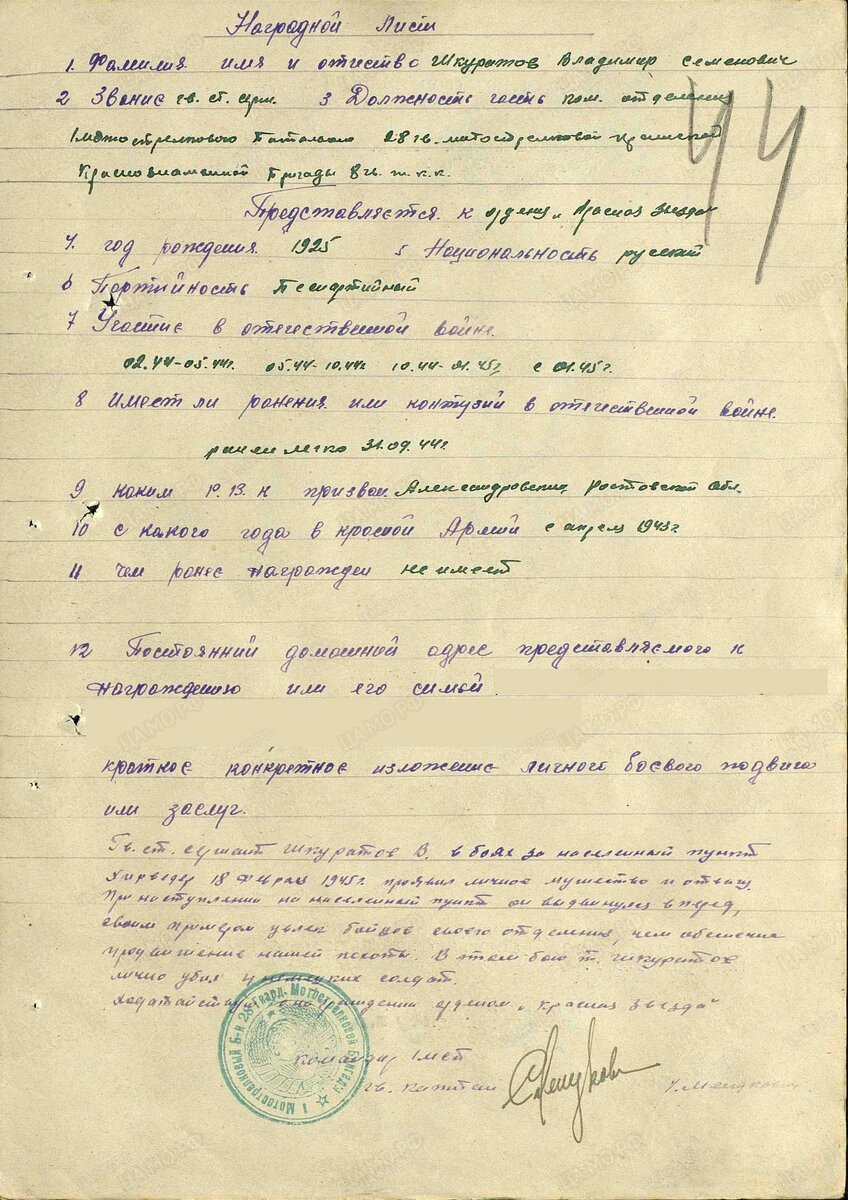 Наградной Лист
1. Фамилия имя и отчество Шкуратов Владимир Семенович
2 Звание гв. ст. серж. 3 Должность часть ком. отделения
1 мотострелкового батальона 28 гв. мотострелковой
Краснознаменной бригады 8 гв. т.к.к.
Представляется к ордену „Красная звезда"
4. год рождения 1925 5 Национальность русский
6 Партийность Беспартийный
7 Участие в отечественной войне
02.44-05.44г. 05.44-10.44г 10.44-01.45г с 01.45г.
8 Имеет ли ранения или контузий в отечественной войне
ранен легко 31.09.44г.
9 каким Р.В.К призван Александровским, Ростовской обл.
10 с какого года в красной Армий с апреля 1943г
11 чем ранее награжден не имеет
12 Постоянний домашний адрес представляемого к
награждению или его симьй
кротное конкретное изложение личного боевого подвига
или заслуг.
Гв. ст. сержант Шкуратов В. в боях за населенный пункт
18 Февраля 1945г. проявил личное мужество и отвагу.
При наступлении на населенный пункт он выдвинулся вперед,
своим примером увлек бойцов своего отделения, чем обеспечив
продвижение нашей пехоты. В этом бою т. Шкуратов
лично убил 4 немецких солдат.
Ходатайствую о награждении орденом „Красная звезда"
Командир 1 мсб
гв. капитан
1 Мотострелковый Б-н 28 Гвард. Мотострелковой Бригады
44
ЦАМО РФ